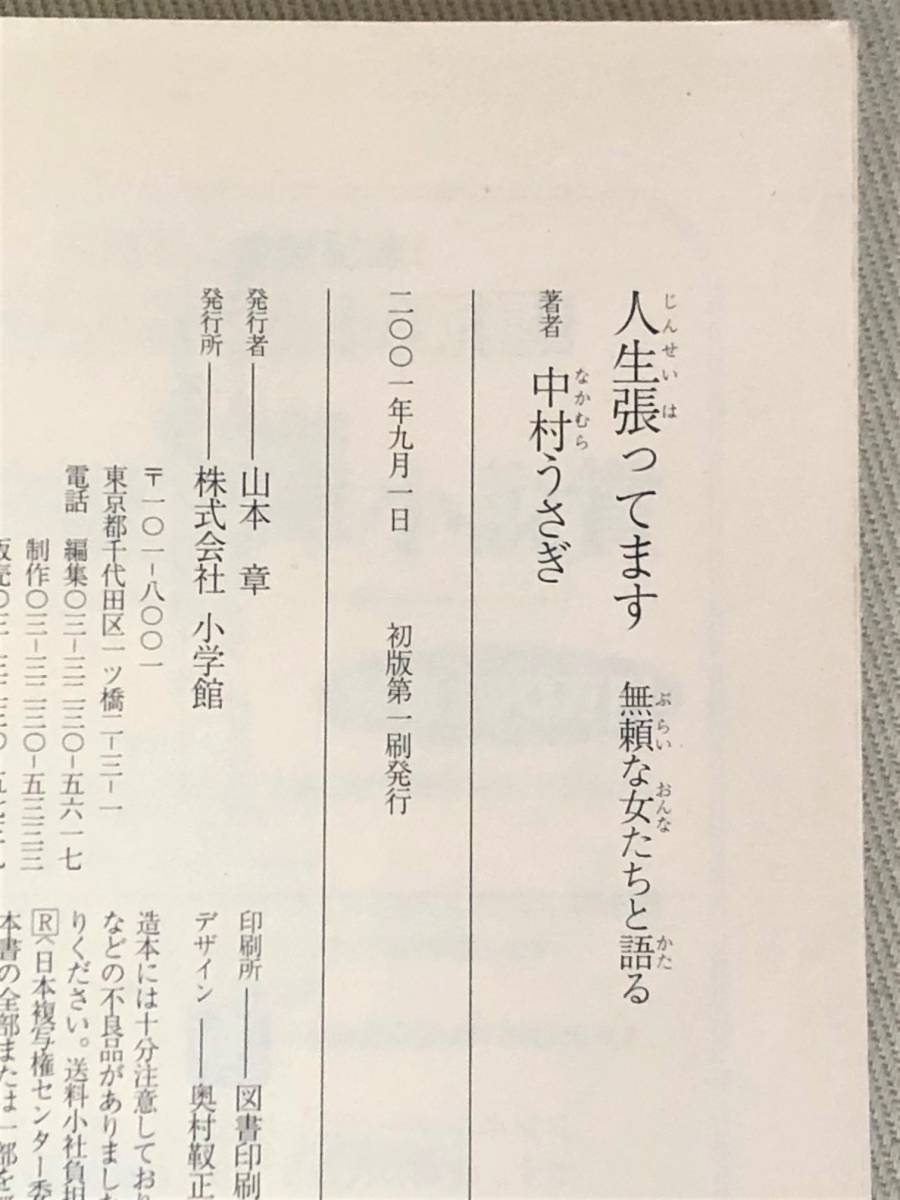 人生張ってます 無頼な女たちと語る
じんせいは ぶらい おんな かた
著者 中村うさぎ
なかむら
二〇〇一年九月一日 初版第一刷発行
発行者──山本 章
発行所──株式会社 小学館
〒一〇一−八〇〇一
東京都千代田区一ツ橋二−三−一
電話 編集〇三−三二三〇−五六一七
制作〇三−三二三〇−五三三三
販売〇三−三二三〇−五七三九
印刷所──図書印刷
デザイン──奥村靫正
造本には十分注意しており
などの不良品がありました
りください。送料小社負担
R〈日本複写権センター委
本書の全部または一部を